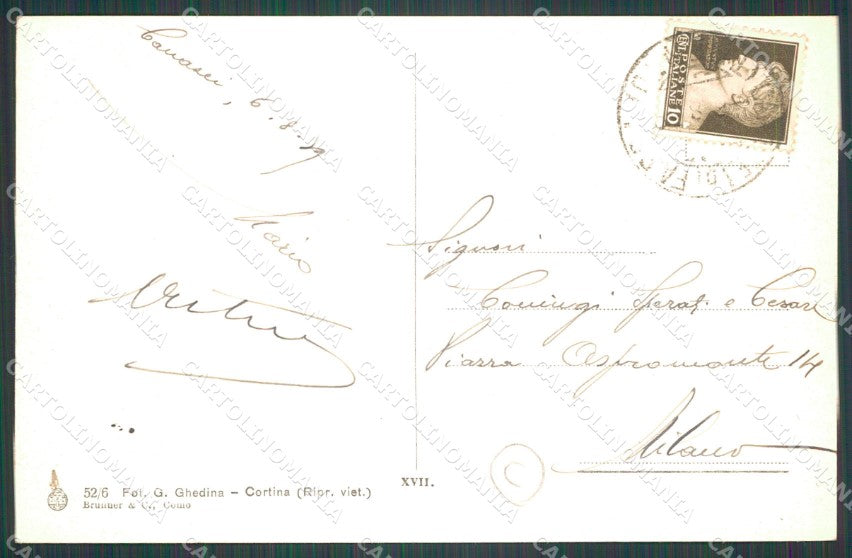 Canazei, 6.8.39
Mario
Signori
Comingi Sperati e Cesare
Piazza Aspromonte 14
Milano
POSTE
ITALIANE
CENT 10
C
XVII.
52/6 Fot. G. Ghedina – Cortina (Ripr. viet.)
Brunner & C., Como
CARTOLINOMANIA